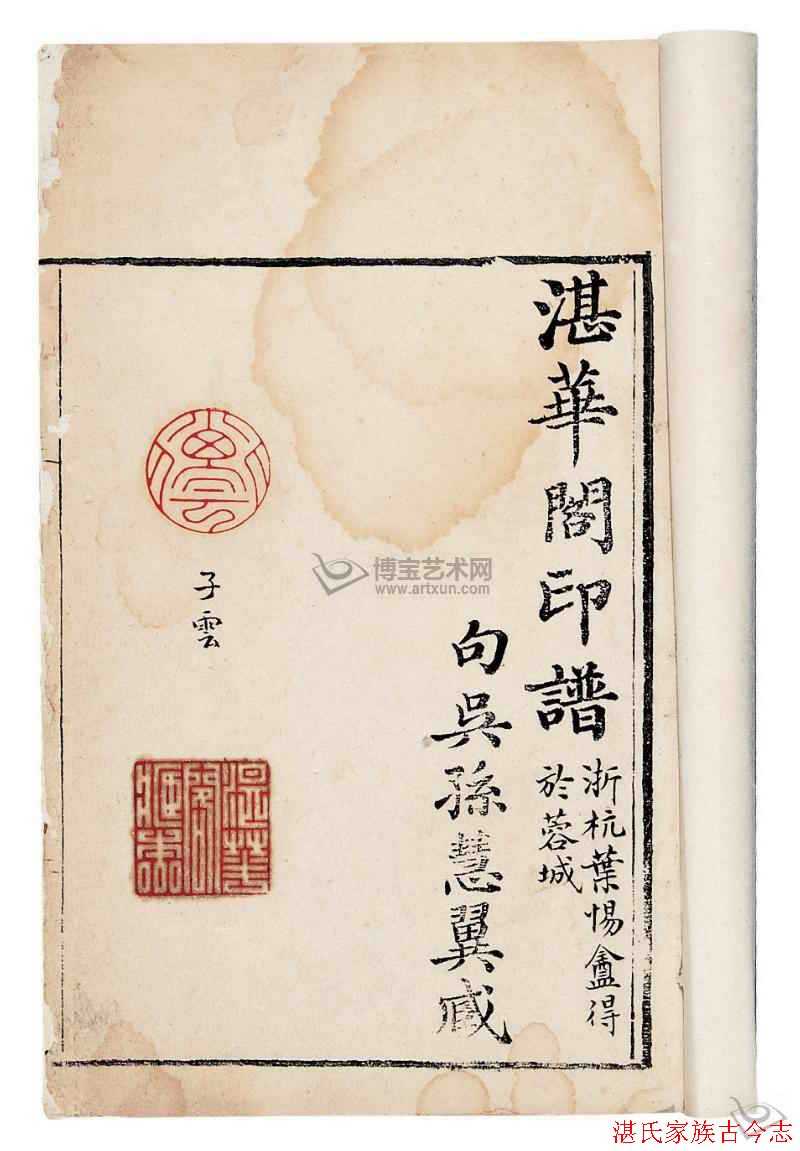 湛華閣印譜
浙杭葉惕盦得
於蓉城
句吳孫慧翼臧
子雲
博宝艺术网
www.artxun.com
湛氏家族古今志